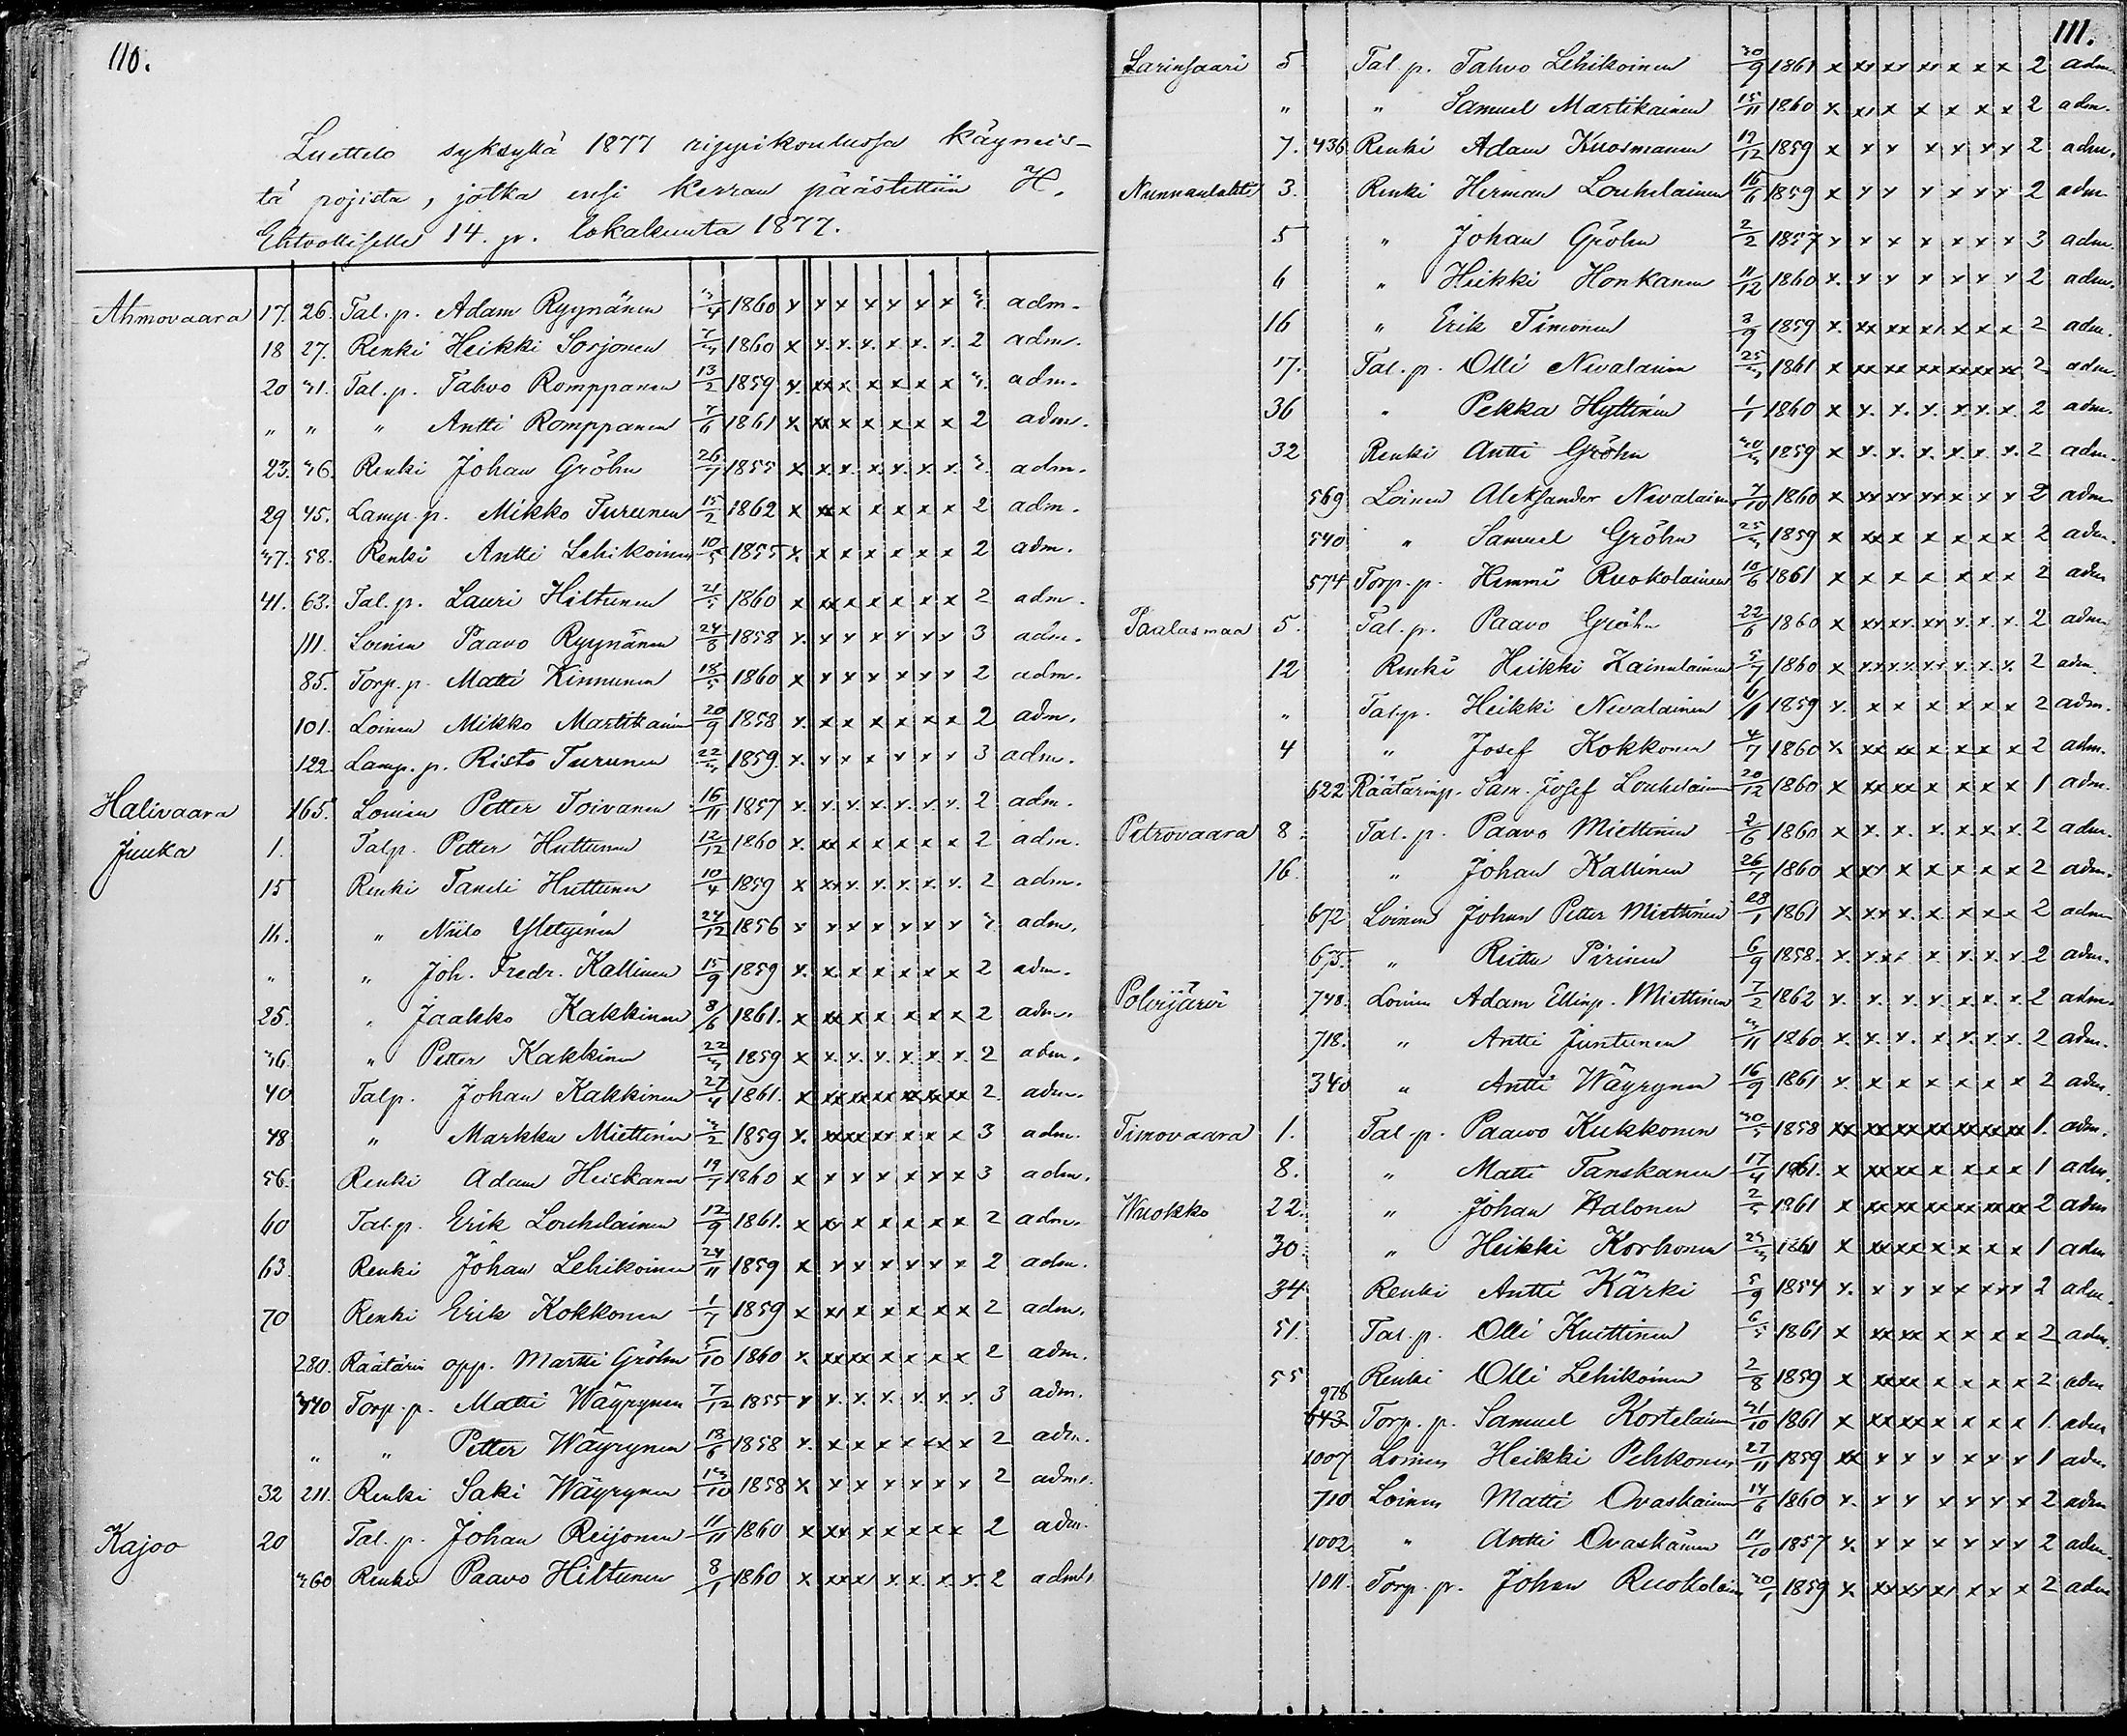 110.
Luettelo syksyllä 1877 rippikoulussa käyneis-
tä pojista, jotka ensi kerran päästettiin H.
Ehtoolliselle 14. p. lokakuuta 1877.
Ahmovaara 17. 26. Tal. p. Adam Ryynänen 3/4 1860 x x x x x x x 3. adm.
18 27. Renki Heikki Sorjonen 7/3 1860 x x. x. x. x. x. x. 2 adm.
20 31. Tal. p. Tahvo Romppanen 13/2 1859 x. xx x x x x x 3. adm.
" " " Antti Romppanen 7/6 1861 x. xx x x x x x 2 adm.
23. 36. Renki Johan Gröhn 26/7 1855 x. x. x. x. x. x. x. 3. adm.
29 45. Lamp. p. Mikko Turunen 15/2 1862 x xx x x x x x 2 adm.
37. 58. Renki Antti Lehikoinen 10/5 1855 x. x x x x x x 2 adm.
41. 63. Tal. p. Lauri Hiltunen 21/5 1860 x xx x x x x x 2 adm.
111. Loinen Paavo Ryynänen 24/8 1858 x. x x x x x x 3 adm.
85. Torp. p. Matti Kinnunen 18/5 1860 x x x x x x x 2 adm.
101. Loinen Mikko Martikainen 20/9 1858 x. x x x x x x 2 adm.
122. Lamp. p. Risto Turunen 22/3 1859. x. x x x x x x 3 adm.
Halivaara 165. Loinen Petter Toivanen 16/11 1857 x. x. x. x. x. x. x. 2 adm.
Juuka 1. Talp. Petter Huttunen 12/12 1860 x. xx x x x x x 2 adm.
15 Renki Taneli Huttunen 10/4 1859 x xx x. x. x. x. x. 2 adm.
14. " Niilo Yletyinen 24/12 1856 x x x x x x x 3 adm.
" " Joh. Fredr. Kallinen 15/9 1859 x. x x x x x x 2 adm.
25. " Jaakko Kakkinen 8/6 1861. x xx x x x x x 2 adm.
36. " Petter Kakkinen 22/3 1859 x x. x. x. x. x. x. 2 adm.
40 Talp. Johan Kakkinen 27/4 1861. x xx xx xx xx xx xx 2. adm.
48 " Markku Miettinen 3/2 1859 x. xx xx xx x x x 3 adm.
56. Renki Adam Heiskanen 19/7 1860 x x x x x x x 3 adm.
60 Tal.p. Erik Louhelainen 12/9 1861. x xx x x x x x 2 adm.
63 Renki Johan Lehikoinen 24/11 1859 x x x x x x x 2 adm.
70 Renki Erik Kokkonen 1/7 1859 x xx x x x x x 2 adm.
280. Räätärin opp. Martti Gröhn 5/10 1860 x. xx xx x x x x 2 adm.
340 Torp. p. Matti Wäyrynen 7/12 1855 x x. x. x. x. x. x. 3 adm.
" " Petter Wäyrynen 18/6 1858 x. x x x x x x 2 adm.
32 211. Renki Saki Wäyrynen 13/10 1858 x x x x x x x 2 adm.
Kajoo 20 Tal. p. Johan Reijonen 11/11 1860 x xx x x x x x 2 adm.
360 Renki Paavo Hiltunen 8/1 1860 x xx x x. x. x. x. 2 adm.
111.
Larinsaari 5 Tal. p. Tahvo Lehikoinen 30/9 1861 x xx xx xx x x x 2 adm.
" " Samuel Martikainen 15/11 1860 x xx x x x x x 2 adm.
7. 436 Renki Adam Kuosmanen 19/12 1859 x x x x x x x 2 adm.
Nunnanlahti 3. Renki Herman Louhelainen 16/6 1859 x x x x x x x 2 adm
5 " Johan Gröhn 2/2 1857 x x x x x x x 3 adm.
6 " Heikki Honkanen 11/12 1860 x. x x x x x x 2 adm.
16 " Erik Timonen 3/9 1859 x. xx xx xx x x x 2 adm.
17. Tal. p. Olli Nevalainen 25/3 1861 x xx xx xx xx xx xx 2 adm.
36 " Pekka Hyttinen 1/1 1860 x x. x. x. x. x. x. 2 adm.
32 Renki Antti Gröhn 30/3 1859 x x. x. x. x. x. x. 2 adm.
569 Loinen Aleksander Nevalainen 7/10 1860 x xx xx xx x x x 2 adm
540 " Samuel Gröhn 25/3 1859 x xx x x x x x 2 adm.
574 Torp. p. Hemmi Ruokolainen 10/6 1861 x x x x x x x 2 adm
Paalasmaa 5. Tal. p. Paavo Gröhn 22/6 1860 x xx xx. xx x. x. x. 2 adm
12 Renki Heikki Kainulainen 5/7 1860 x x.x. x.x. x.x. x. x. x. 2 adm.
" Tal.p. Heikki Nevalainen 6/1 1859 x. x x x x x x 2 adm.
4 " Josef Kokkonen 4/7 1860 x. xx xx x x x x 2 adm.
622 Räätärinp. Sam. Josef Louhelainen 20/12 1860 x xx xx x x x x 1 adm.
Petrovaara 8. Tal. p. Paavo Miettinen 2/6 1860 x x. x. x. x. x. x. 2 adm.
16. " Johan Kallinen 26/7 1860 x xx x x x x x 2 adm.
672 Loinen Johan Petter Miettinen 28/1 1861 x. xx x. x. x x x 2 adm
675. " Reittu Pirinen 6/9 1858. x. x.x x. x. x. x. x 2 adm.
Polvijärvi 748. Loinen Adam Ellinp. Miettinen 7/2 1862 x. x. x. x. x. x. x. 2 adm.
718. " Antti Juntunen 3/11 1860 x. x. x. x. x. x. x. 2 adm.
340 " Antti Wäyrynen 16/9 1861 x. x x x x x x 2 adm.
Timovaara 1. Tal. p. Paavo Kukkonen 30/5 1858 xx xx xx xx xx xx xx 1. adm.
8. " Matti Tanskanen 17/4 1861. x xx xx x x x x 1 adm.
Wuokko 22. " Johan Halonen 2/5 1861 x xx xx xx xx xx xx 2 adm
30. " Heikki Korhonen 25/3 1861 x xx xx x x x x 1 adm
34 Renki Antti Kärki 5/9 1854 x. x x x x x x 2 adm.
51. Tal. p. Olli Kuittinen 6/5 1861 x xx xx x x x x 2 adm.
55 Renki Olli Lehikoinen 2/8 1859 x xx xx x x x x 2 adm
978
643 Torp. p. Samuel Kortelainen 31/10 1861 x xx xx x x x x 1. adm
1007 Loinen Heikki Pehkonen 27/11 1859 xx x x x x x x 1 adm
710 Loinen Matti Ovaskainen 14/6 1860 x. x x x x x x 2 adm
1002 " Antti Ovaskainen 11/10 1857 x. x x x x x x 2 adm.
1011. Torp. p. Johan Ruokolain 30/1 1859 x. xx xx xx x x x 2 adm